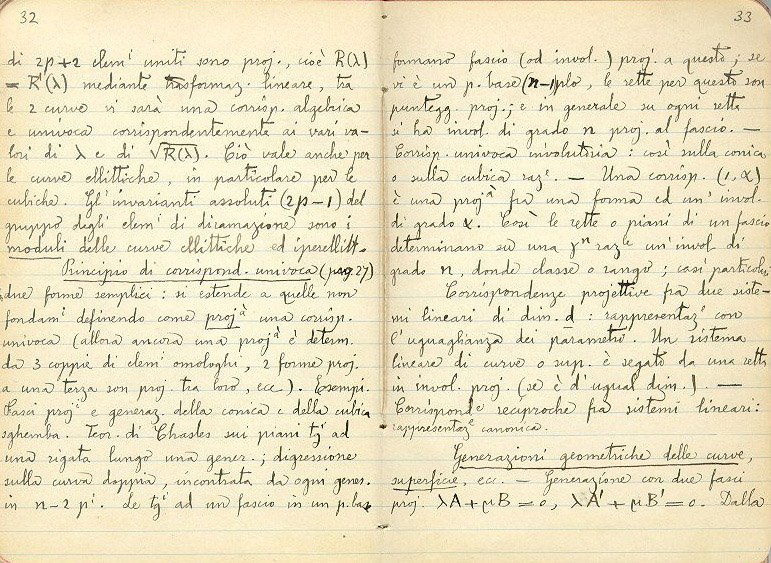 32
di 2p+2 elemⁱ uniti sono proj., cioè R(λ)
= R'(λ) mediante trasformaz. lineare, tra
le 2 curve vi sarà una corrisp. algebrica
e univoca corrispondentemente ai vari va-
lori di λ e di √R(λ). Ciò vale anche per
le curve ellittiche, in particolare per le
cubiche. Gl'invarianti assoluti (2p-1) del
gruppo degli elemⁱ di diramazione sono i
moduli delle curve ellittiche ed iperellitt.
Principio di corrispond. univoca (pag. 27)
due forme semplici: si estende a quelle non
fondamⁱ definendo come projᵃ̀ una corrisp.
univoca (allora ancora una projᵃ̀ è determ.
da 3 coppie di elemⁱ omologhi, 2 forme proj.
a una terza son proj. tra loro, ecc.). Esempi.
Fasci projⁱ e generaz. della conica e della cubica
sghemba. Teor. di Chasles sui piani tgⁱ ad
una rigata lungo una gener.; digressione
sulla curva doppia, incontrata da ogni gener.
in n-2 pⁱ. Le tgⁱ ad un fascio in un p. base
33
formano fascio (od invol.) proj. a questo; se
vi è un p. base (n-1)plo, le rette per questo son
punteggⁱ. proj.; e in generale su ogni retta
si ha invol. di grado n proj. al fascio. —
Corrisp. univoca involutoria: così sulla conica
o sulla cubica razᵉ. — Una corrisp. (1, α)
è una projᵃ̀ fra una forma ed un' invol.
di grado α. Così le rette o piani di un fascio
determinano su una γⁿ razᵉ un' invol. di
grado n, donde classe o rango; casi particolari
Corrispondenze projettive fra due siste-
mi lineari di dim. d: rappresentazᵉ con
l'uguaglianza dei parametri. Un sistema
lineare di curve o sup. è segato da una retta
in invol. proj. (se è d'ugual dim.). —
Corrispondᵉ reciproche fra sistemi lineari:
rappresentazᵉ canonica.
Generazioni geometriche delle curve,
superficie, ecc. — Generazione con due fasci
proj. λA+μB=0, λA'+μB'=0. Dalla